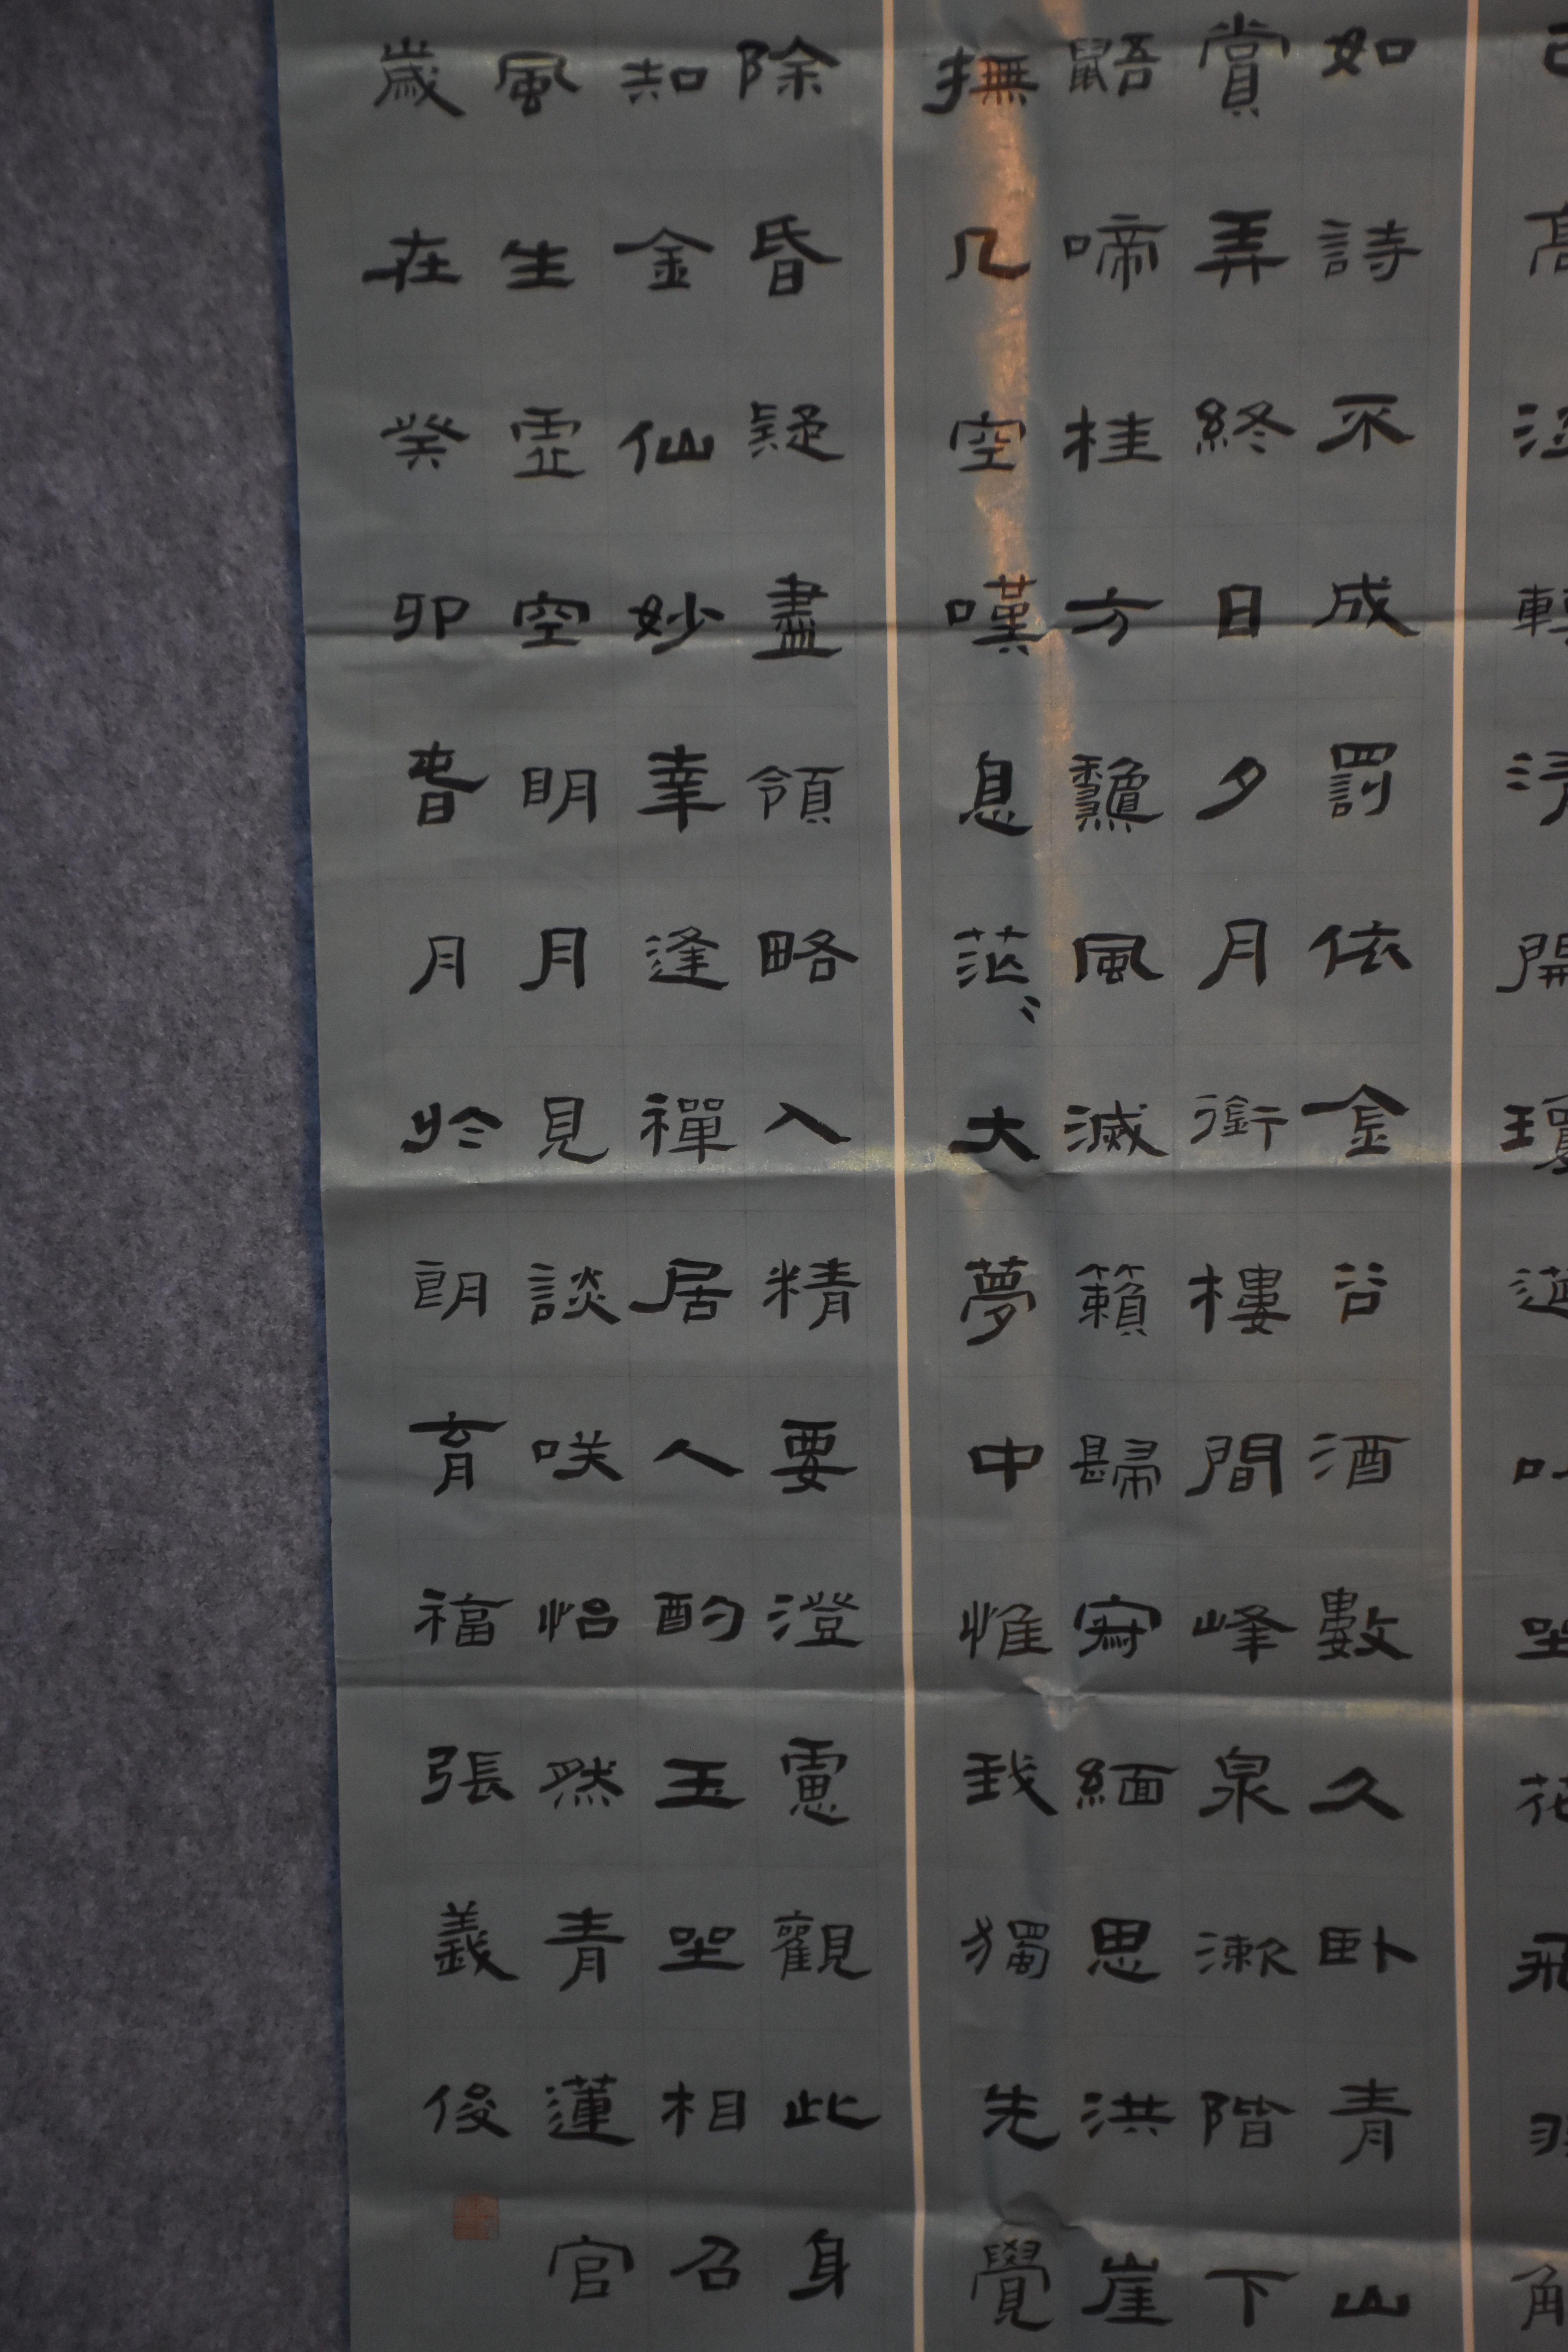 如詩不成罰依金谷酒數久臥青山
賞弄終日夕月銜樓間峰泉漱階下
鼯啼桂方龝風滅籟歸寂緬思洪崖
撫几空嘆息茫〻大夢中惟我獨先覺
除昏疑盡領略入精要澄慮觀此身
知金仙妙幸逢禪居人酌玉坐相召
風生虛空明月見談咲怡然青蓮宮
歲在癸卯春月於朗育福張義俊